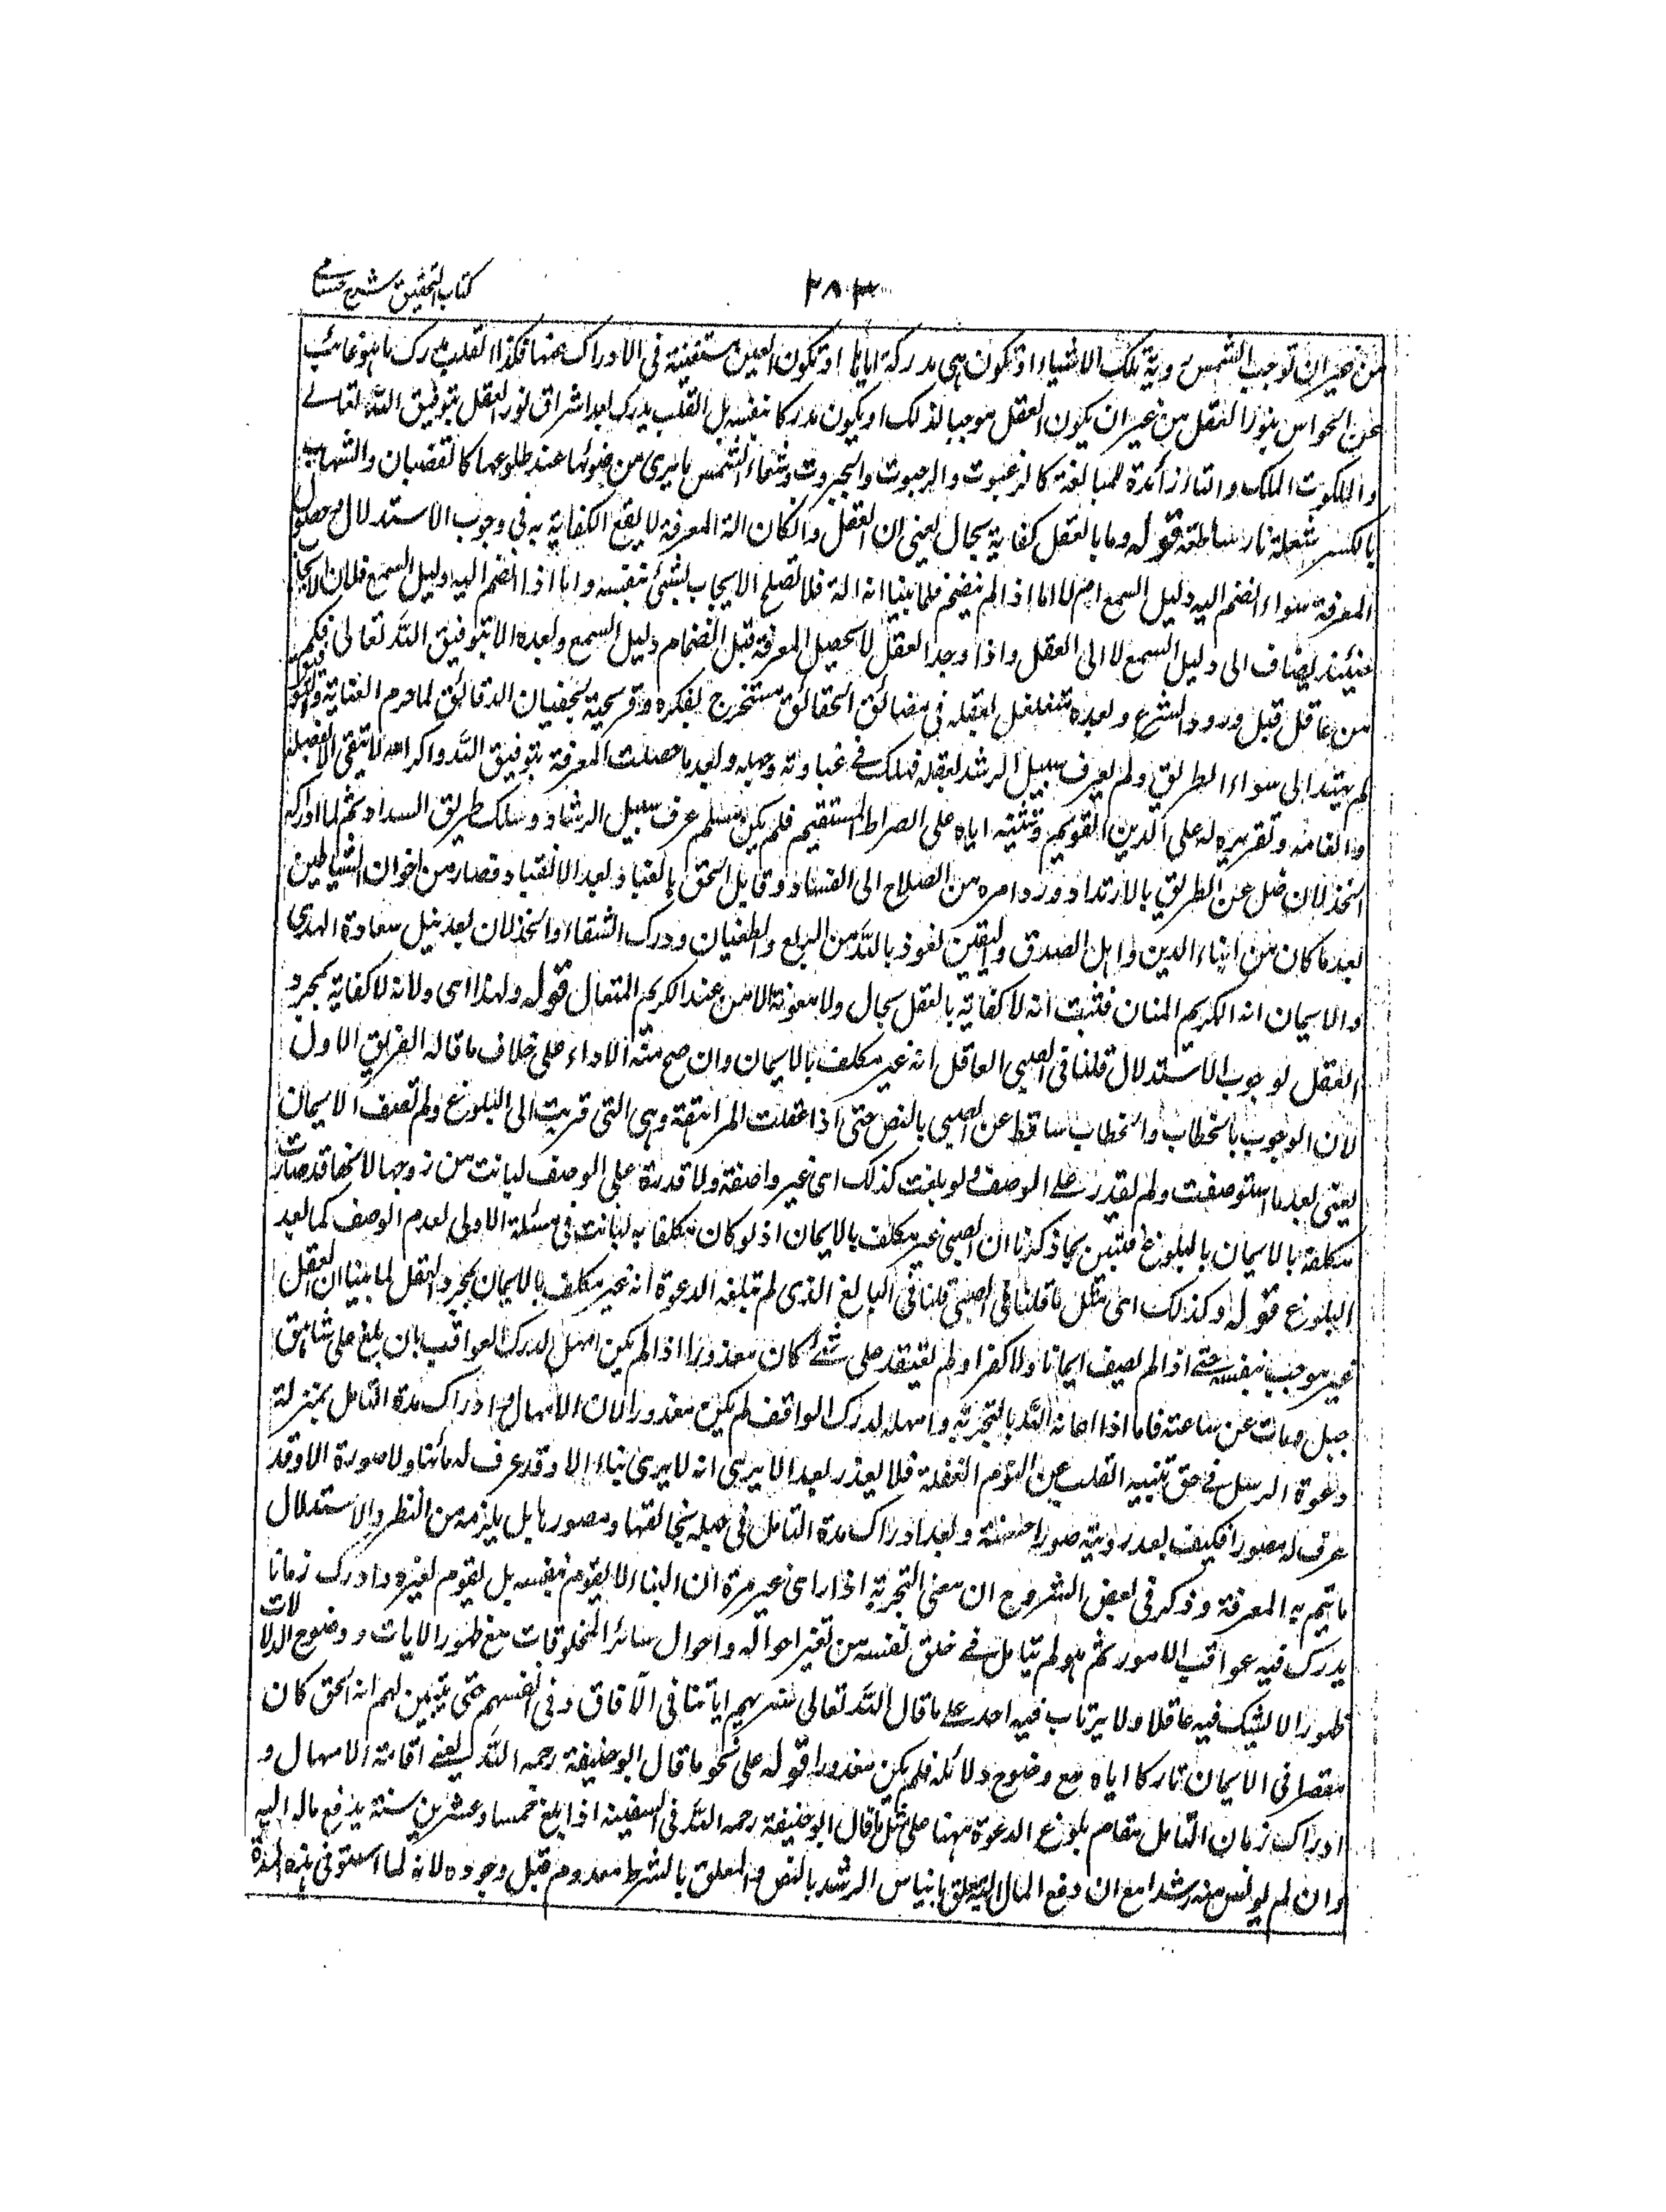 كتاب التحقيق شرح حسامى
٢٨٣
من غير ان توجب الشمس روية تلك الاشياء او تكون هى مدركة اياها او تكون العين مستغنية فى الادراك عنها فكذا القلب يدرك ما هو غائب
عن الحواس بنور العقل من غير ان يكون العقل موجبا لذلك او يكون مدركا بنفسه بل القلب يدرك بعد اشراق نور العقل بتوفيق الله تعالے
والملكوت الملك والتاء زائدة للمبالغة كالرغبوت والرهبوت والجبروت وشعاع الشمس ما يرى من ضوئها عند طلوعها كالقضبان والشهاب
بالكسر شعلة نار ساطعة قوله وما بالعقل كفاية بحال يعنى ان العقل وان كان الة المعرفة لا يقع الكفاية به فى وجوب الاستدلال وحصول
المعرفة سواء انضم اليه دليل السمع ام لا اما اذا لم ينضم فلما بينا انه الة فلا تصلح لايجاب شئ بنفسه واما اذا انضم اليه دليل السمع فلان الايجاب
حينئذ يضاف الى دليل السمع لا الى العقل واذا وجد العقل لا تحصل المعرفة قبل انضمام دليل السمع وبعده الا بتوفيق الله تعالى فكم
من عاقل قبل ورود الشرع وبعده متغلغل بعقله فى مضائق الحقائق مستخرج بفكره وقريحته لخفيات الدقائق لما حرم العناية والتوفيق
لم يهتد الى سواء الطريق ولم يعرف سبيل الرشد بعقله فهلك فے غباوته وجهله وبعد ما حصلت المعرفة بتوفيق الله واكرامه لا تبقى الا بفضله
وانعامه وتقريره له على الدين القويم وتثبيته اياه على الصراط المستقيم فكم من مسلم عرف سبيل الرشاد وسلك طريق السداد ثم لما ادركه
الخذلان ضل عن الطريق بالارتداد ورد امره من الصلاح الى الفساد وقابل الحق بالعناد بعد الانقياد فصار من اخوان الشياطين
بعد ما كان من ابناء الدين واهل الصدق واليقين نعوذ بالله من الزيغ والطغيان ودرك الشقاء والخذلان بعد نيل سعادة الهدى
والايمان انه الكريم المنان فثبت انه لا كفاية بالعقل بحال ولا معونة الا من عند الكريم المتعال قوله ولهذا اى ولانه لا كفاية بمجرد
العقل لوجوب الاستدلال قلنا فى الصبى العاقل انه غير مكلف بالايمان وان صح منه الاداء على خلاف ما قاله الفريق الاول
لان الوجوب بالخطاب والخطاب ساقط عن الصبى بالنص حتى اذا عقلت المراهقة وهى التى قربت الى البلوغ ولم تصف الايمان
يعنى بعد ما استوصفت ولم تقدر على الوصف ولو بلغت كذلك اى غير واصفة ولا قادرة على الوصف لبانت من زوجها لانها قد صارت
مكلفة بالايمان بالبلوغ فتبين بما ذكرنا ان الصبى غير مكلف بالايمان اذ لو كان مكلفا به لبانت فى مسئلة الاولى لعدم الوصف كما بعد
البلوغ قوله وكذلك اى مثل ما قلنا فى الصبى قلنا فى البالغ الذى لم تبلغه الدعوة انه غير مكلف بالايمان بمجرد العقل لما بينا ان العقل
غير موجب بنفسه حتے اذا لم يصف ايمانا ولا كفرا ولم يعتقد على شئ كان معذورا اذا لم يكن امهل لدرك العواقب بان بلغ على شاهق
جبل ومات عن ساعته فاما اذا اعانه الله بالتجربة وامهله لدرك العواقب لم يكن معذورا لان الامهال وادراك مدة التامل بمنزلة
دعوة الرسل فے حق تنبيه القلب عن النوم الغفلة فلا يعذر بعد الا يرى انه لا يرى بناء الا وقد عرف له بانيا ولا صورة الا وقد
عرف له مصورا فكيف بعد روية صورا حسنة وبعد ادراك مدة التامل فى جهله بخالقها ومصورها بل يلزمه من النظر والاستدلال
ما يتم به المعرفة وذكر فى بعض الشروح ان معنى التجربة اذا راى غير مرة ان البناء لا يقوم بنفسه بل يقوم بغيره وادرك زمانا
يدرك فيه عواقب الامور ثم هو لم يتامل فے خلق نفسه من تغير احواله واحوال سائر المخلوقات مع ظهور الايات ووضوح الدلالات
ظهورا لا يشك فيه عاقلا ولا يرتاب فيه احد على ما قال الله تعالى سنريهم اياتنا فى الآفاق وفى انفسهم حتى يتبين لهم انه الحق كان
مقصرا فى الايمان تاركا اياه مع وضوح دلائله فلم يكن معذورا قوله على نحو ما قال ابو حنيفة رحمه الله يعنے اقامة الامهال و
ادراك زمان التامل مقام بلوغ الدعوة ههنا على مثل ما قال ابو حنيفة رحمه الله فى السفيه اذا بلغ خمسا وعشرين سنة يدفع ماله اليه
وان لم يونس منه رشدا مع ان دفع المال اليه معلق بايناس الرشد بالنص والمعلق بالشرط معدوم قبل وجوده لانه لما استوفى هذه المدة